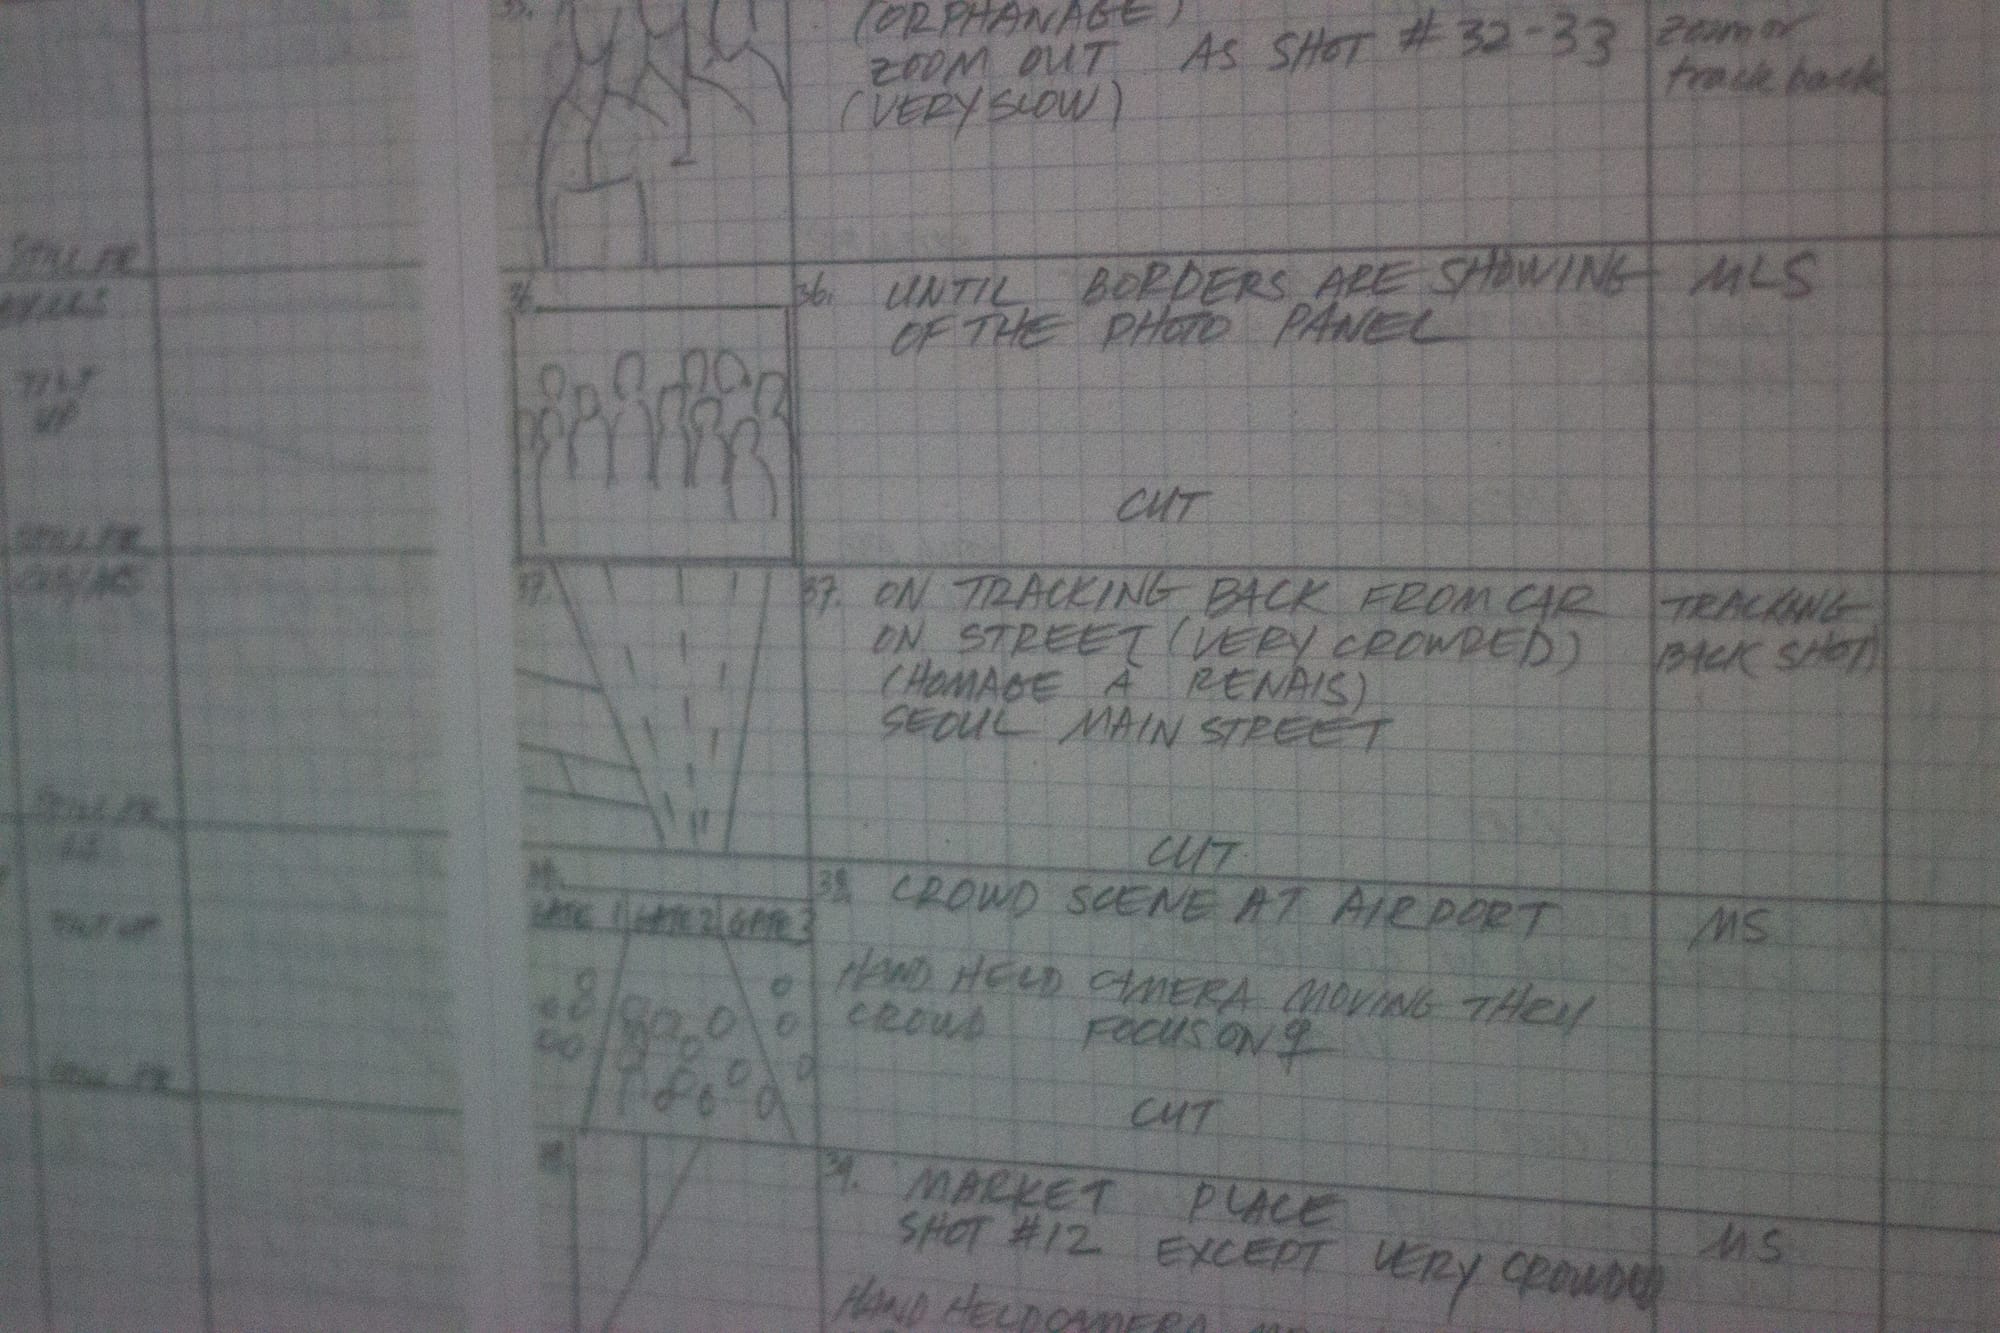 STILL FR
TILT
UP
STILL FR
STILL FR
TILT UP
STILL FR
35.
(ORPHANAGE)
ZOOM OUT AS SHOT #32-33
(VERY SLOW)
zoom or
track back
36.
36. UNTIL BORDERS ARE SHOWING
OF THE PHOTO PANEL
CUT
MLS
37.
37. ON TRACKING BACK FROM CAR
ON STREET (VERY CROWDED)
(HOMAGE A RENAIS)
SEOUL MAIN STREET
CUT
TRACKING
BACK SHOT
38.
GATE 1 GATE 2 GATE 3
38. CROWD SCENE AT AIRPORT
HAND HELD CAMERA MOVING THRU
CROWD FOCUS ON ♀
CUT
MS
39. MARKET PLACE
SHOT #12 EXCEPT VERY CROWDED
HAND HELD CAMERA
MS